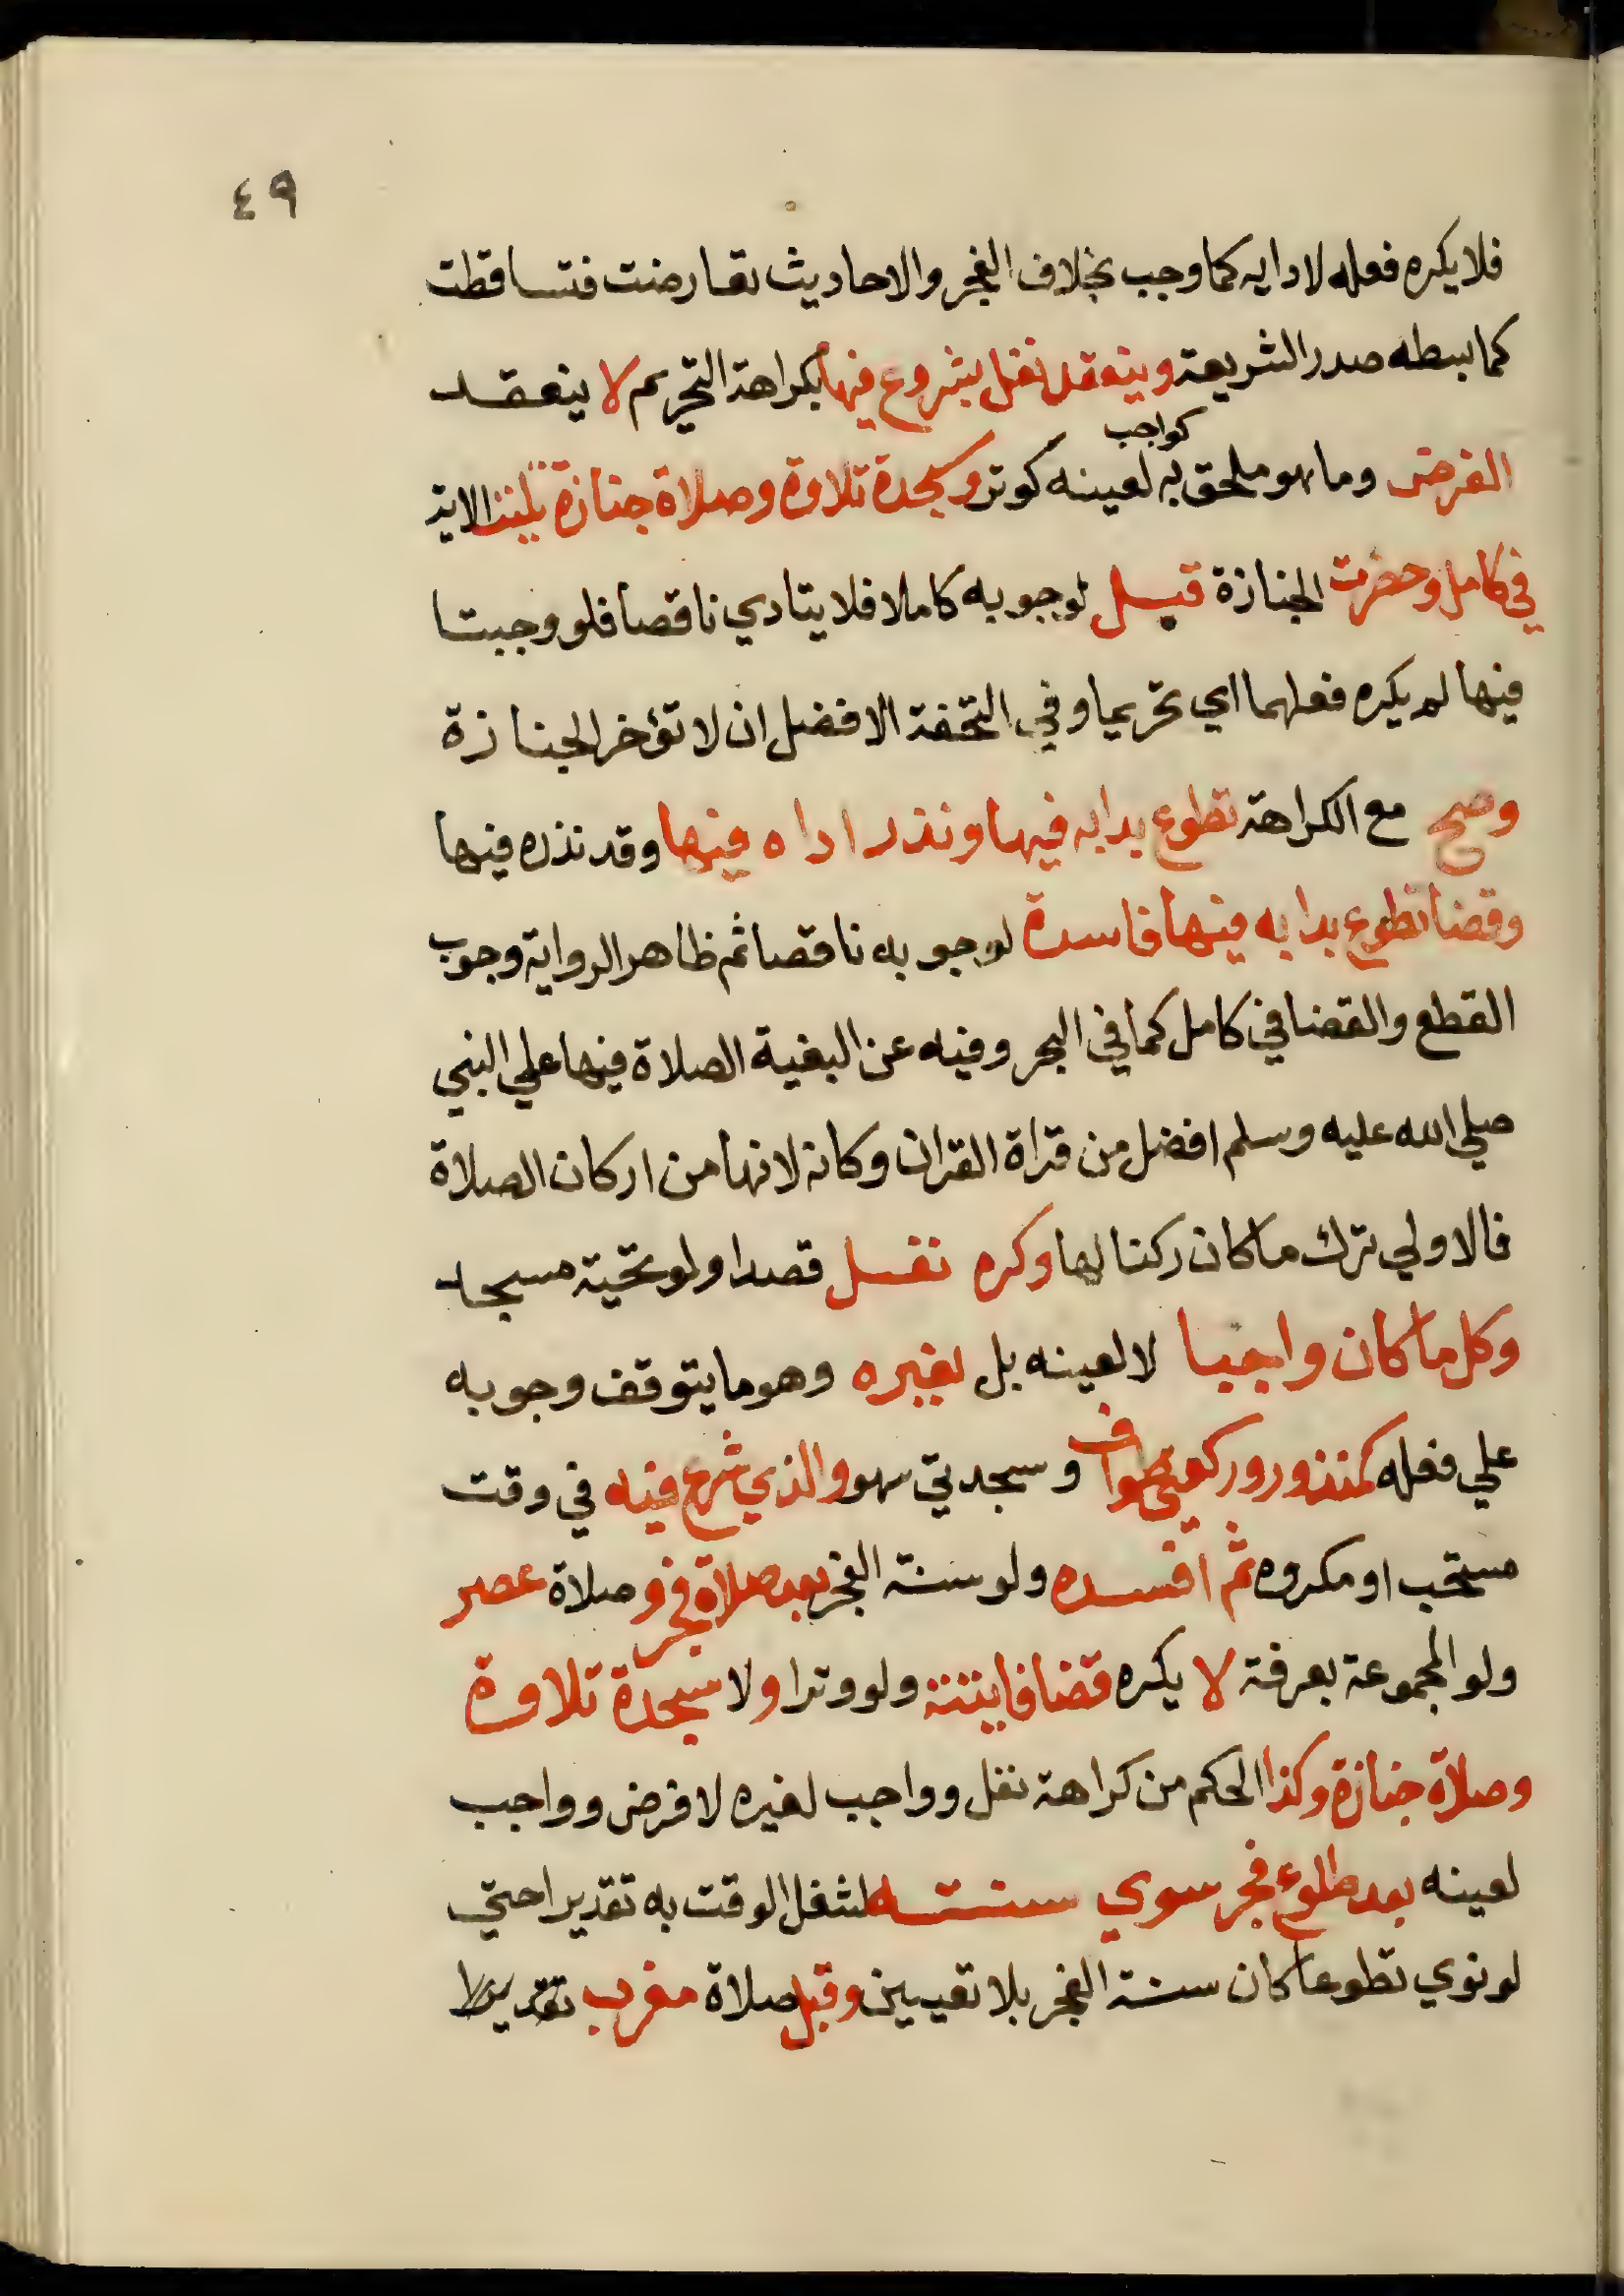 ٤٩
فلا يكره فعله لادايه كما وجب بخلاف الفجر والاحاديث تعارضت فتساقطت
كما بسطه صدر الشريعة وينعقد نفل بشروع فيها بكراهة التحريم لا ينعقد
كواجب
الفرض وما هو ملحق به لعينه كوتر وسجدة تلاوة وصلاة جنازة تليت الاية
في كامل وحضرت الجنازة قبل لوجوبه كاملا فلا يتادي ناقصا فلو وجبتا
فيها لم يكره فعلهما اي تحريما وفي التحفة الافضل ان لا تؤخر الجنازة
وصح مع الكراهة تطوع بدا به فيها ونذر اداه فيها وقد نذره فيها
وقضا تطوع بدا به فيها فاسدة لوجوبه ناقصا ثم ظاهر الرواية وجوب
القطع والقضا في كامل كما في البحر وفيه عن البغية الصلاة فيها علي النبي
صلي الله عليه وسلم افضل من قراة القران وكانه لانها من اركان الصلاة
فالاولي ترك ما كان ركنا لها وكره نفل قصدا ولو تحية مسجد
وكل ما كان واجبا لا لعينه بل لغيره وهو ما يتوقف وجوبه
علي فعله كمنذور وركعتي طواف وسجدتي سهو والذي شرع فيه في وقت
مستحب او مكروه ثم افسده ولو سنة الفجر بعد صلاة فجر وصلاة عصر
ولو المجموعة بعرفة لا يكره قضا فايتة ولو وترا ولا سجدة تلاوة
وصلاة جنازة وكذا الحكم من كراهة نفل وواجب لغيره لا فرض وواجب
لعينه بعد طلوع فجر سوي سنته لشغل الوقت به تقديرا حتي
لو نوي تطوعا كان سنة الفجر بلا تعيين وقبل صلاة مغرب